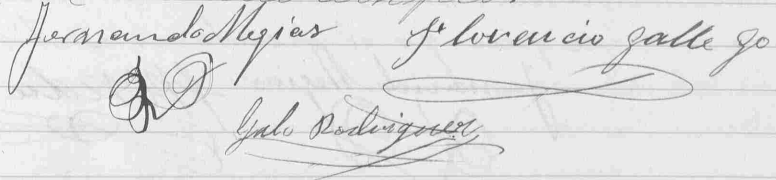 Fernando Megias Florencio Gallego
Galo Rodriguez